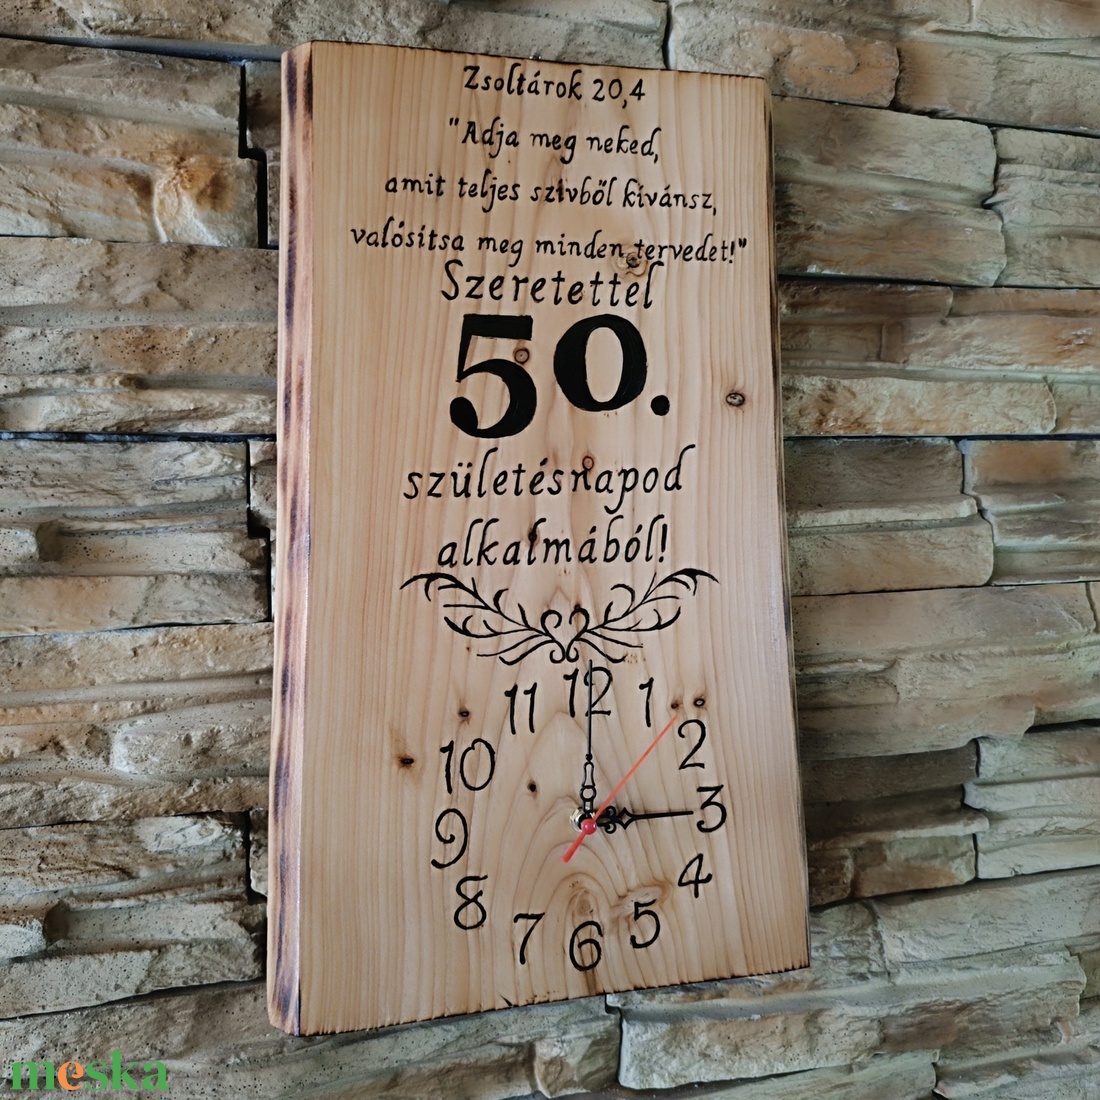 Zsoltárok 20,4
"Adja meg neked,
amit teljes szívből kívánsz,
valósítsa meg minden tervedet!"
Szeretettel
50.
születésnapod
alkalmából!
12
11 1
10 2
9 3
8 4
7 5
6
meska